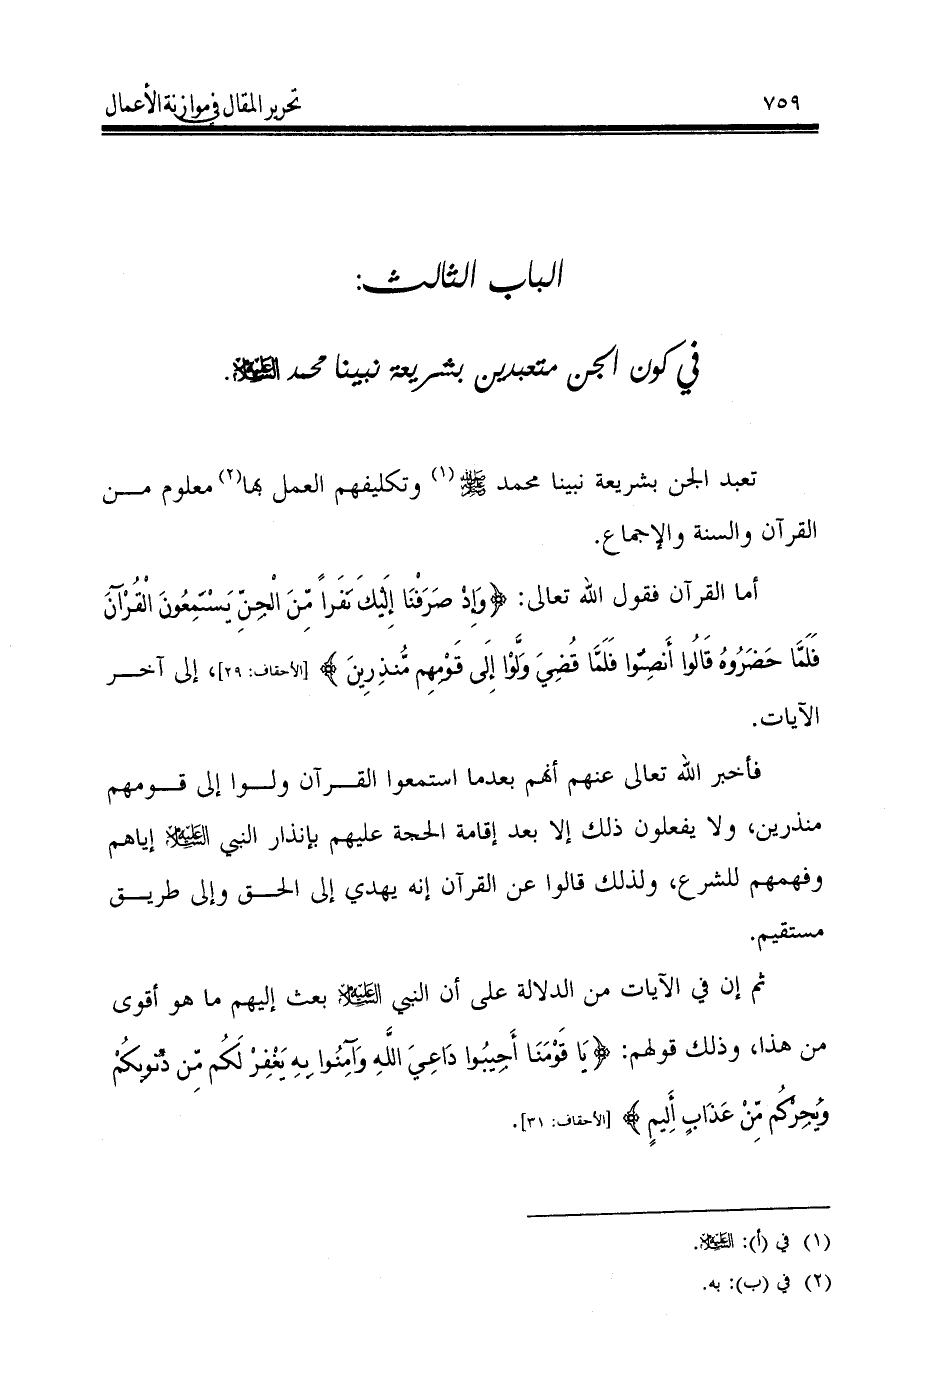 ٧٥٩ تحرير المقال في موازنة الأعمال
الباب الثالث:
في كون الجن متعبدين بشريعة نبينا محمد عليه السلام.
تعبد الجن بشريعة نبينا محمد ﷺ(١) وتكليفهم العمل بها(٢) معلوم مـــن
القرآن والسنة والإجماع.
أما القرآن فقول الله تعالى: ﴿وَإِذْ صَرَفْنَا إِلَيْكَ نَفَراً مِّنَ الْجِنِّ يَسْتَمِعُونَ الْقُرْآنَ
فَلَمَّا حَضَرُوهُ قَالُوا أَنصِتُوا فَلَمَّا قُضِيَ وَلَّوْا إِلَى قَوْمِهِم مُّنذِرِينَ﴾ [الأحقاف: ٢٩]، إلى آخـــر
الآيات.
فأخبر الله تعالى عنهم أنهم بعدما استمعوا القـــرآن ولـــوا إلى قـــومهم
منذرين، ولا يفعلون ذلك إلا بعد إقامة الحجة عليهم بإنذار النبي عليه السلام إياهم
وفهمهم للشرع، ولذلك قالوا عن القرآن إنه يهدي إلى الحـــق وإلى طريـــق
مستقيم.
ثم إن في الآيات من الدلالة على أن النبي عليه السلام بعث إليهم ما هو أقوى
من هذا، وذلك قولهم: ﴿يَا قَوْمَنَا أَجِيبُوا دَاعِيَ اللَّهِ وَآمِنُوا بِهِ يَغْفِرْ لَكُم مِّن ذُنُوبِكُمْ
وَيُجِرْكُم مِّنْ عَذَابٍ أَلِيمٍ﴾ [الأحقاف: ٣١].
(١) في (أ): عليه السلام.
(٢) في (ب): به.